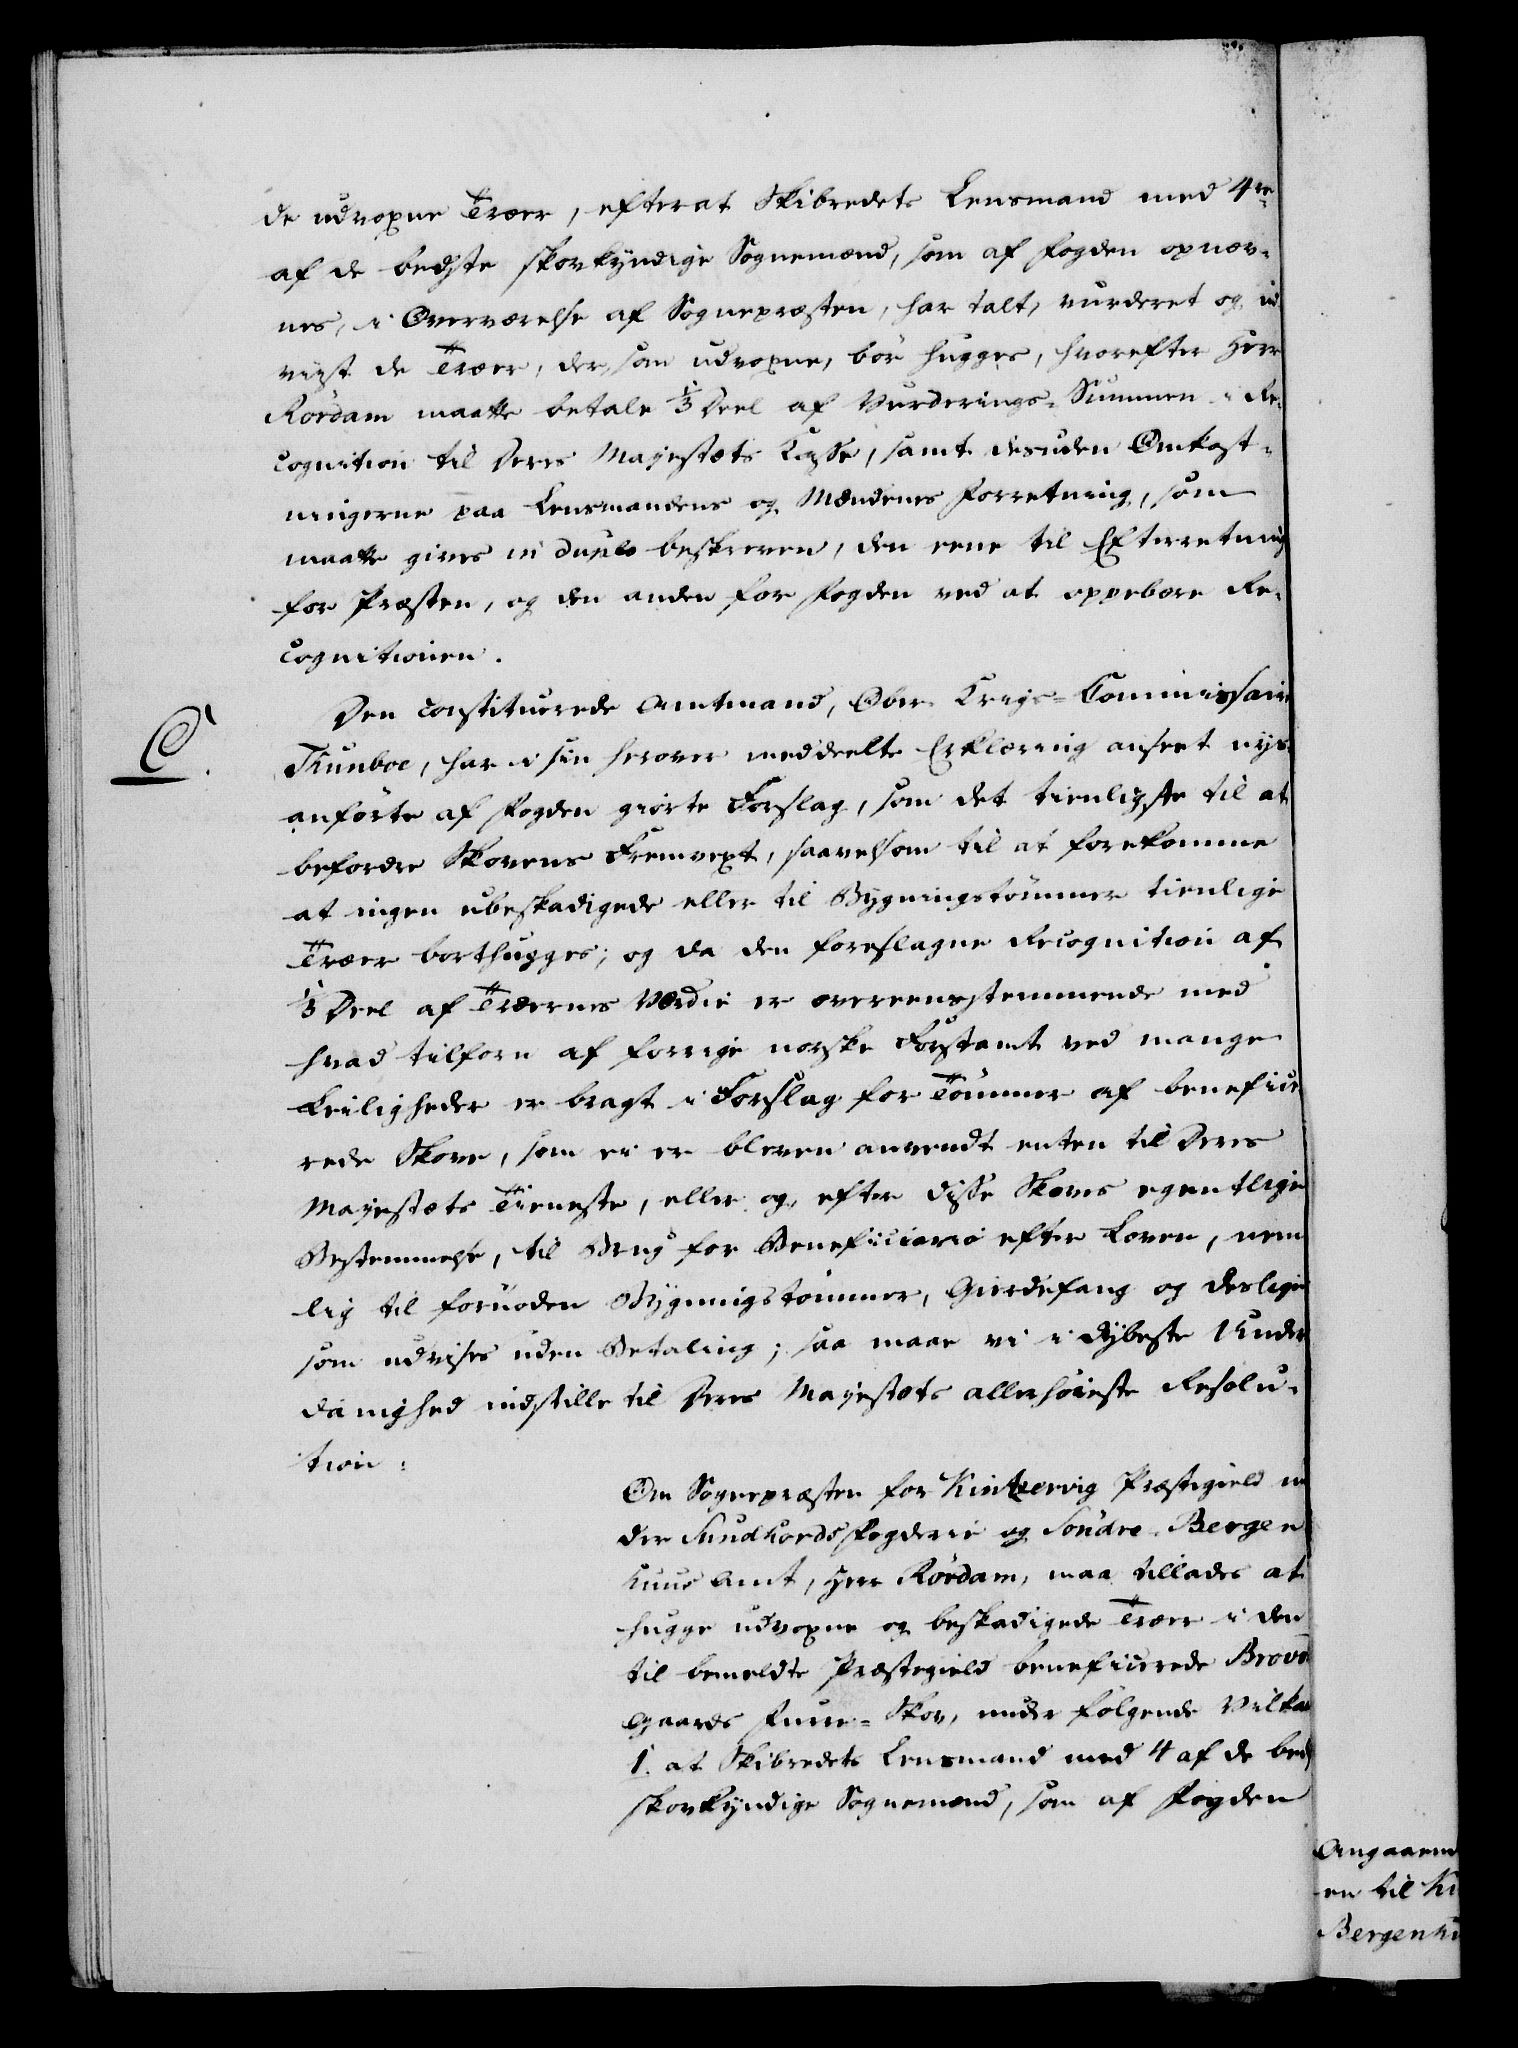 de udvoxne Træer, efterat Skibredets Lensmand med 4re
af de bedste skovkyndige Sognemænd, som af Fogden opnæv-
nes, i Overværelse af Sognepræsten, har talt, vurderet og ud
viist de Træer, der, som udvoxne, bör hugges, hvorefter Herr
Rördam maatte betale 1/3 Deel af Vurderings-Summen i Re-
cognition til Deres Majestæts Casse, samt desuden Omkost-
ningerne paa Lensmandens og Mændenes Forretning, som
maatte gives in duplo beskreven, den eene til Efterretning
for Præsten, og den anden for Fogden ved at oppebære Re-
cognitionen.
Den constituerede Amtmand, Ober-Krigs-Commissair
C.
Junboe, har i sin herover meddeelte Erklæring anseet nys-
anförte af Fogden giorte Forslag, som det tienligste til at
befordre Skovens Fremvext, saavelsom til at forekomme
at ingen ubeskadigede eller til Bygningstömmer tienlige
Træer borthugges; og da den foreslagne Recognition af
1/3 Deel af Træernes Værdie er overeensstemmende med
hvad tilforn af forrige norske Forstamt ved mange
Leiligheder er bragt i Forslag for Tömmer af beneficie
rede Skove, som ei er bleven anvendt enten til Deres
Majestæts Tieneste, eller og, efter disse Skoves egentlige
Bestemmelse, til Brug for Beneficiario efter Loven, nem
lig til fornöden Bygningstömmer, Gierdefang og deslige
som udvises uden Betaling; saa maae vi i dybeste Under
danighed indstille til Deres Majestæts allerhöieste Resolu-
tion:
Om Sognepræsten for Kintzervig Præstegield un
der Sundhords Fogderie og Söndre-Bergen
huus Amt, Herr Rördam, maa tillades at
hugge udvoxne og beskadigede Træer i den
til bemeldte Præstegield beneficerede
Gaards Furre-Skov, under fölgende Vilkaa
1. at Skibredets Lensmand med 4 af de beds
skovkyndige Sognemænd, som af Fogden
Angaaend
en til Ki
Bergenhu